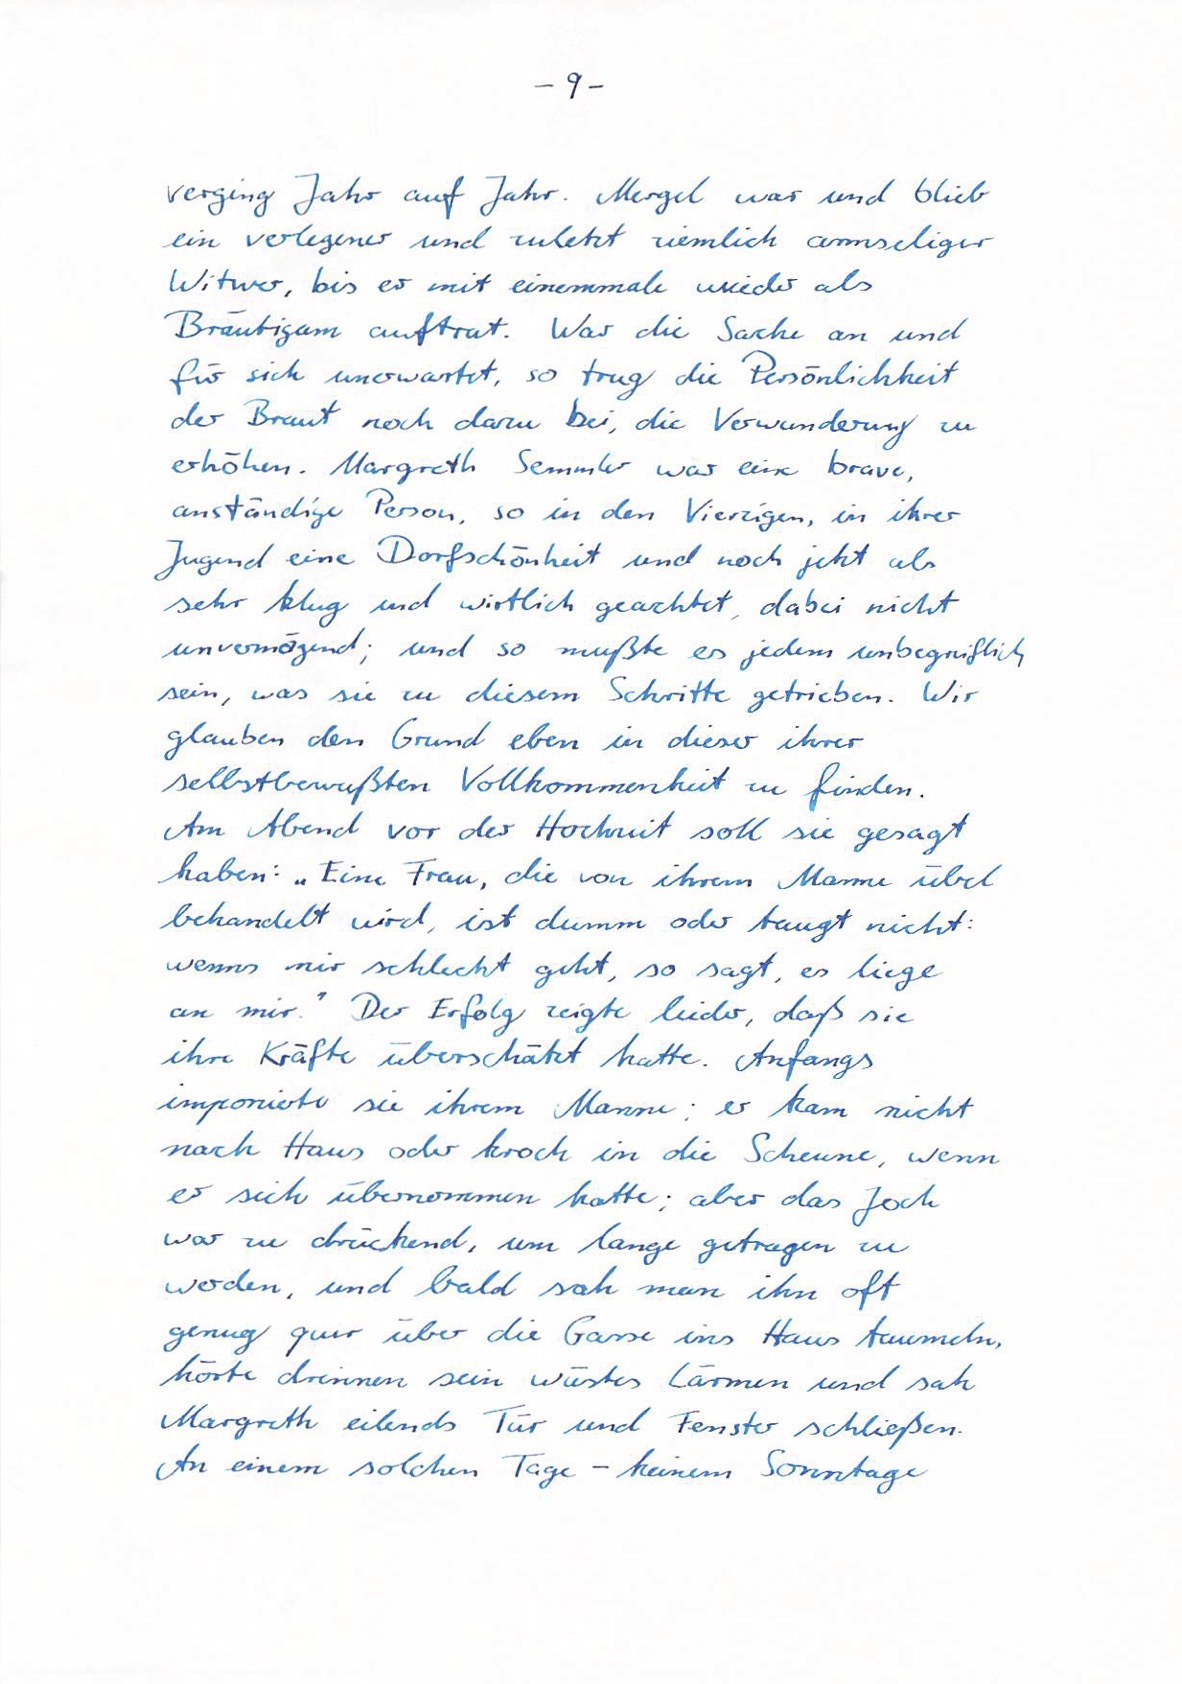 - 9 -
verging Jahr auf Jahr. Mergel war und blieb
ein verlegener und zuletzt ziemlich armseliger
Witwer, bis er mit einemmale wieder als
Bräutigam auftrat. War die Sache an und
für sich unerwartet, so trug die Persönlichkeit
der Braut noch dazu bei, die Verwunderung zu
erhöhen. Margreth Semmler war eine brave,
anständige Person, so in den Vierzigen, in ihrer
Jugend eine Dorfschönheit und noch jetzt als
sehr klug und wirtlich geachtet, dabei nicht
unvermögend; und so mußte es jedem unbegreiflich
sein, was sie zu diesem Schritte getrieben. Wir
glauben den Grund eben in dieser ihrer
selbstbewußten Vollkommenheit zu finden.
Am Abend vor der Hochzeit soll sie gesagt
haben: „Eine Frau, die von ihrem Manne übel
behandelt wird, ist dumm oder taugt nicht:
wenns mir schlecht geht, so sagt, es liege
an mir." Der Erfolg zeigte leider, daß sie
ihre Kräfte überschätzt hatte. Anfangs
imponierte sie ihrem Manne; er kam nicht
nach Haus oder kroch in die Scheune, wenn
er sich übernommen hatte; aber das Joch
war zu drückend, um lange getragen zu
werden, und bald sah man ihn oft
genug quer über die Gasse ins Haus taumeln,
hörte drinnen sein wüstes Lärmen und sah
Margreth eilends Tür und Fenster schließen.
An einem solchen Tage – keinem Sonntage